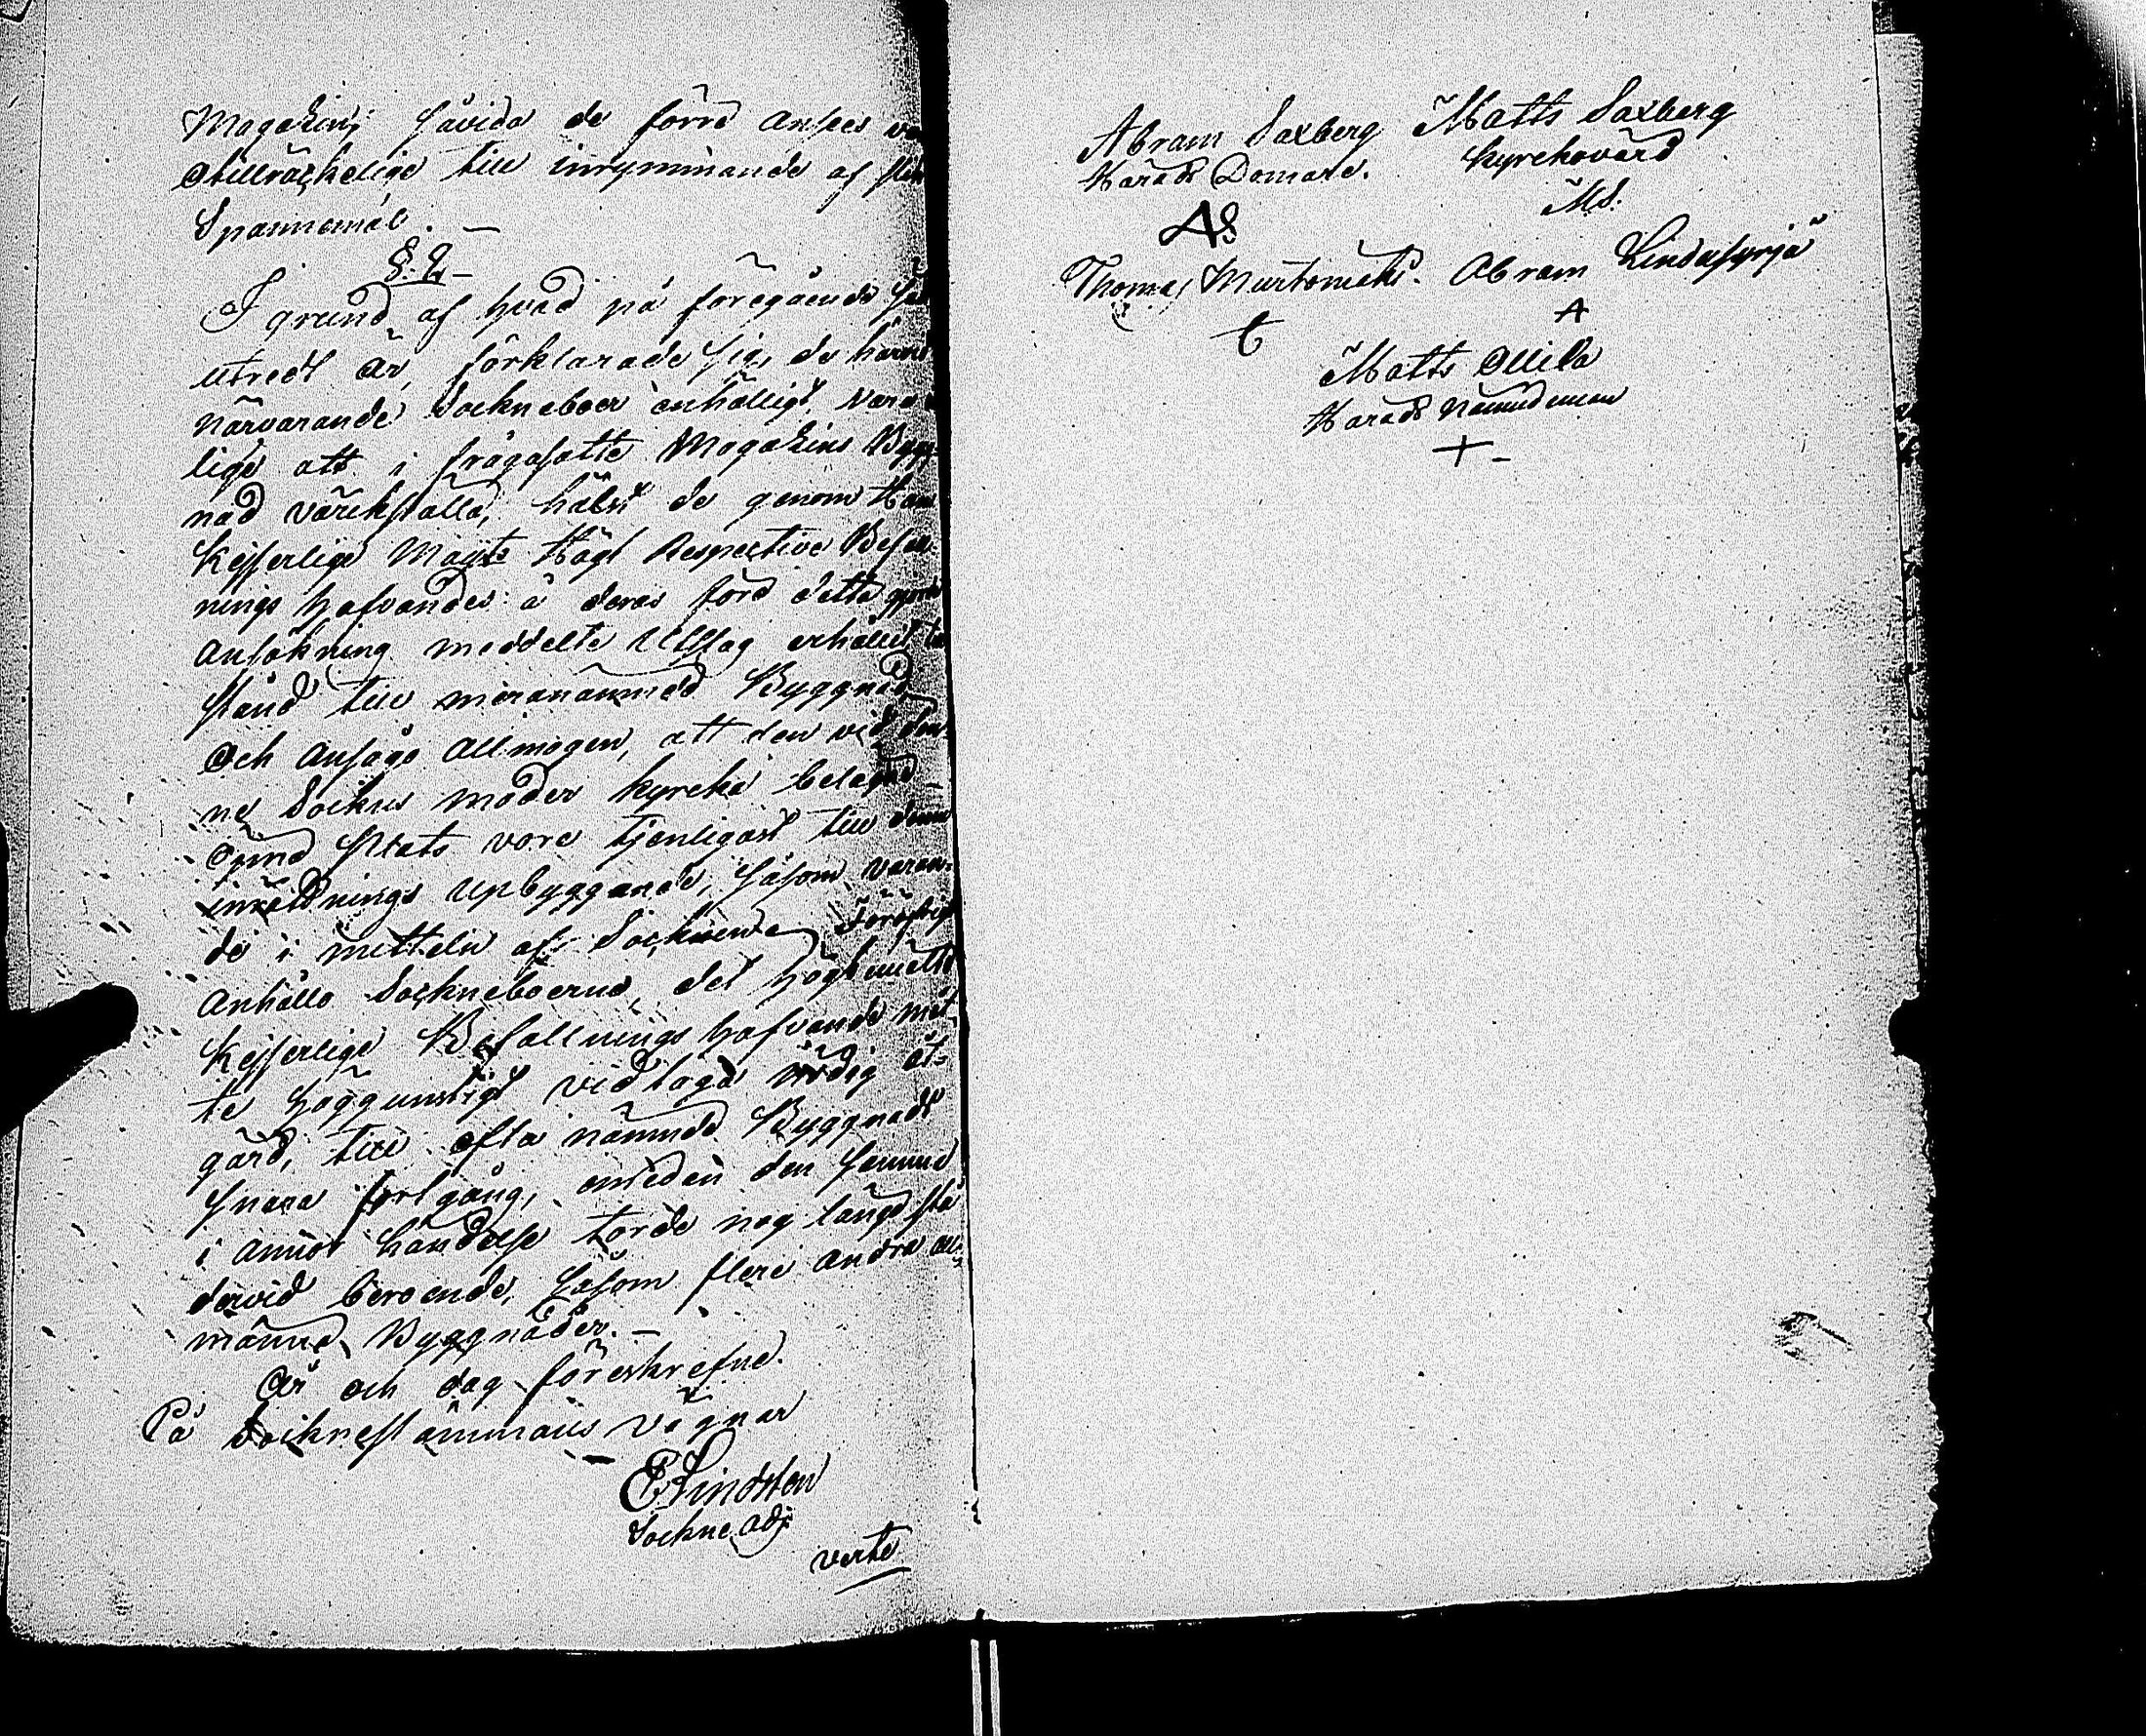 Magazin, såvida de förra anses va
otillräckelige till inrymmande af
Spannemål. —
§. 2. —
I grund af hvad på föregående
utredt är, förklarade sig, de härvid
närvarande Sockneboer enhälligt, vara
lige att i frågasatte Magazins Bygg-
nad värckställa, hälst de genom Hans
Kejserlige Maijts Högt Respective Befall-
nings hafvandes å deras förd detta gjorde
Ansökning meddelte Utslag erhållit till
stånd till meranämnde Byggnad
Och ansågo Allmogen, att den vid den-
ne Sockns moder kyrka belägne
Öpne Plats vore tjenligast till denna
inrättnings upbyggande, såsom varan-
de i mitteln af Socknen.
Anhålla Sockneboerne, det högbemälte
Kejserlige Befallnings hafvande måt-
te höggunstigt vidtaga nödig åt-
gärd, till ofta nämnde Byggnads
snara fortgång, emedan den samma
i annor händelse torde nog länge stå
dervid beroende, såsom flere andra all-
männa Byggnader. —
År och dag förrskrefne.
På Socknestämmans vägnar
E Lindsten
Sockne Adj.
verte
Abram Saxberg Matts Saxberg
Härads Domare. Kyrckovärd
AS MS.
Thomas Murtomäki. Abram Lindasyrjä
t A
Matts Ollila
Härads Nämndeman
+ -